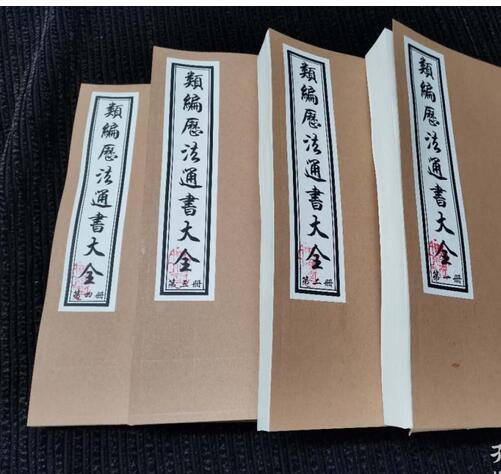 類編曆法通書大全
第一册
類編曆法通書大全
第二册
類編曆法通書大全
第三册
類編曆法通書大全
第四册